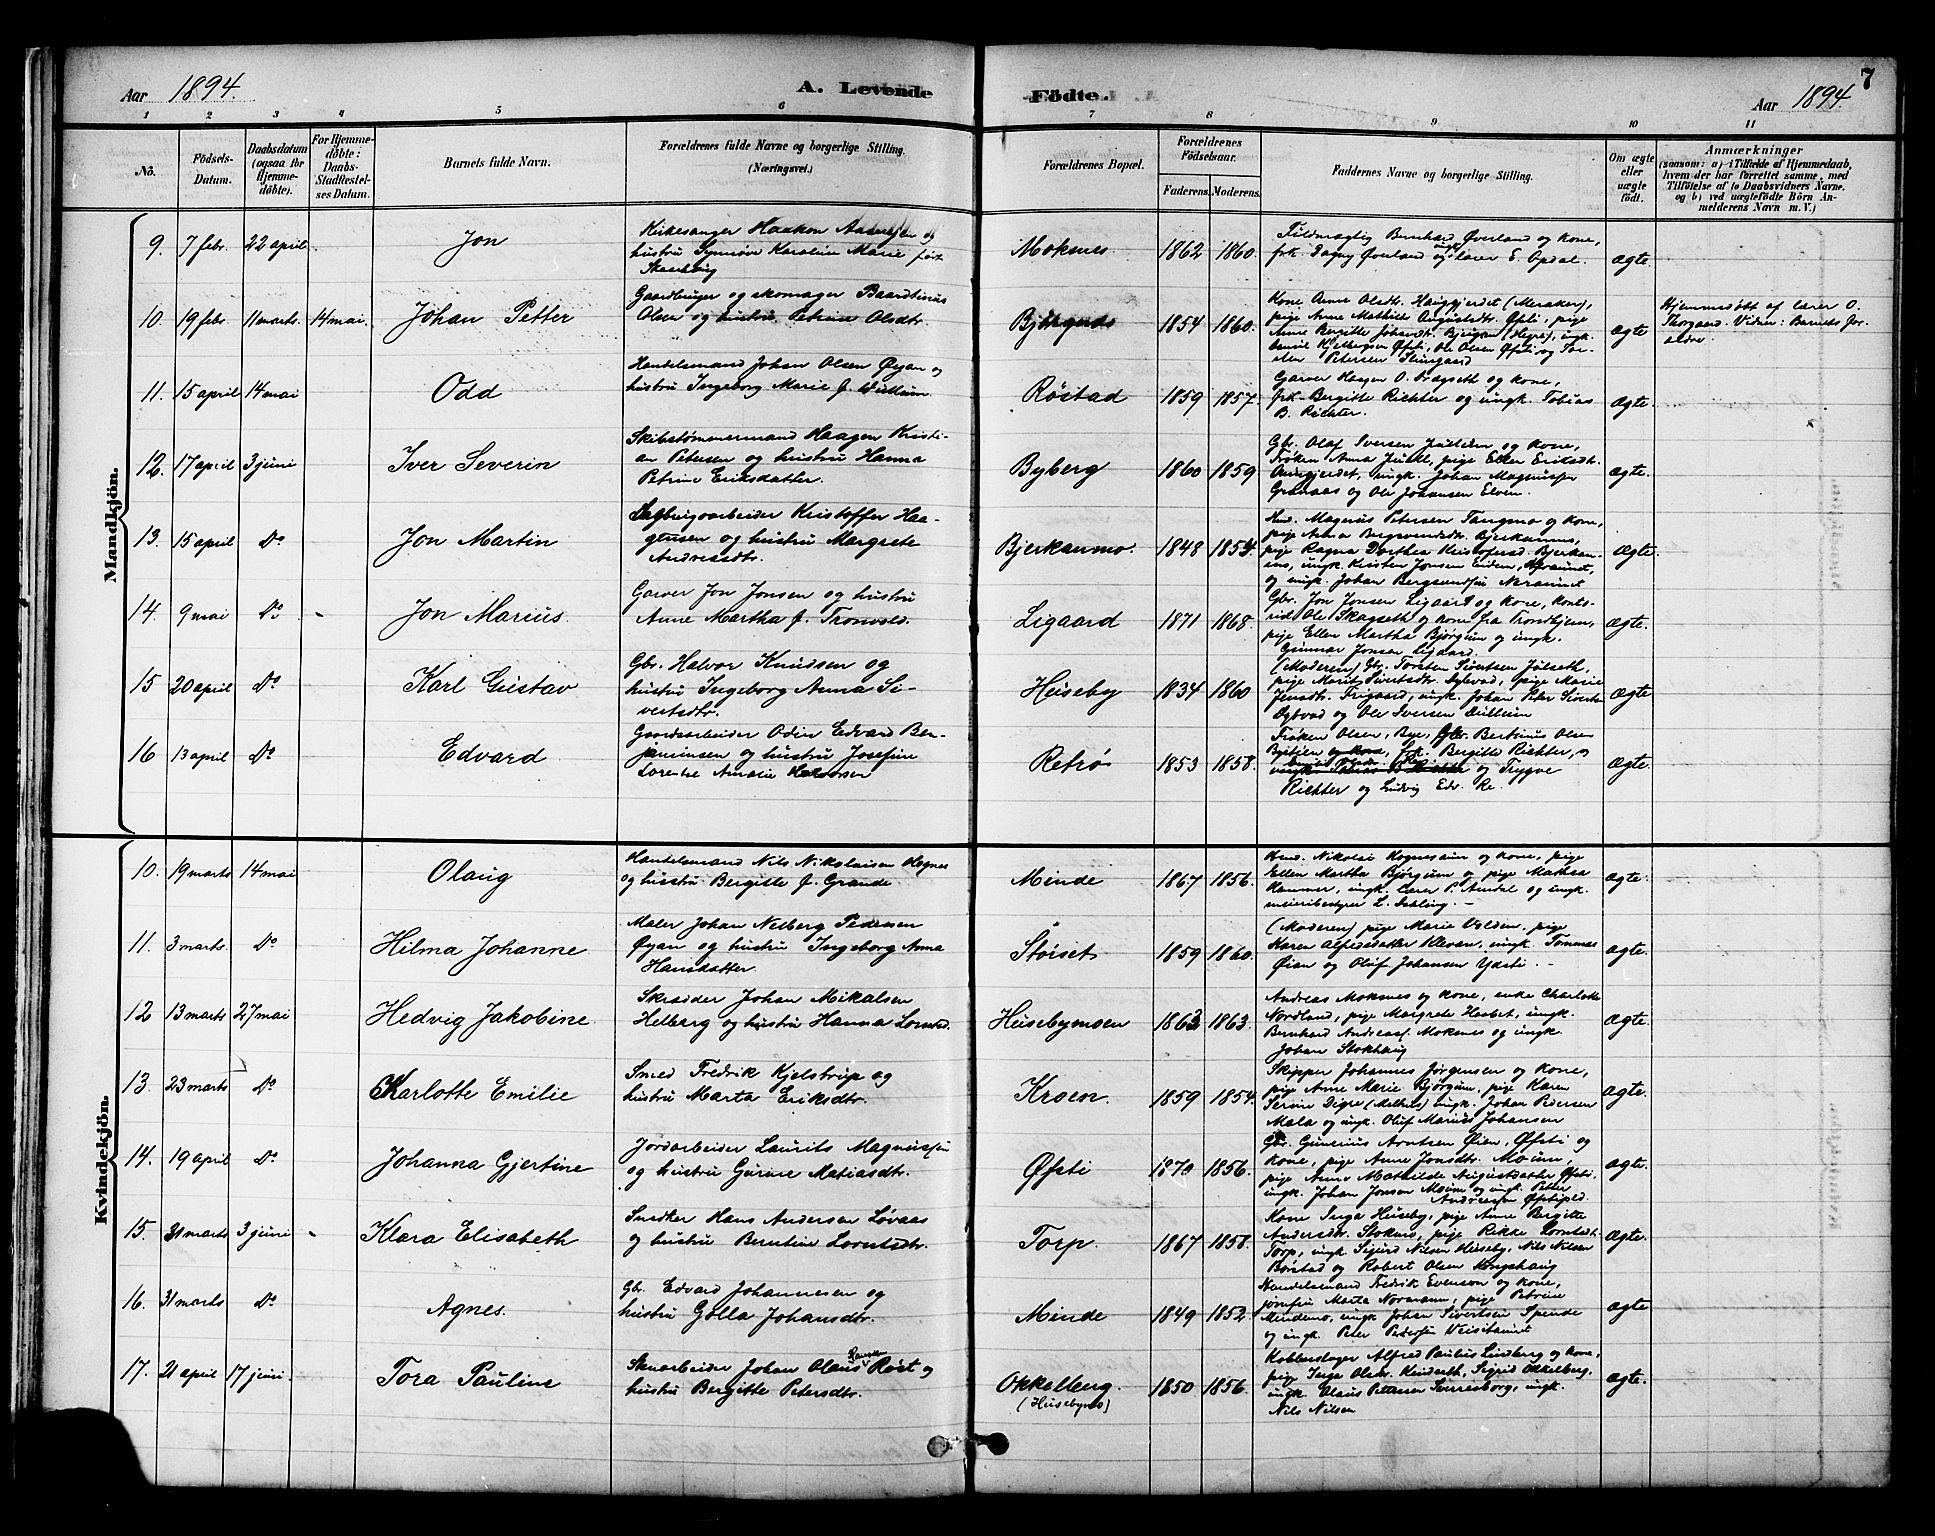 Aar 1894. A. Levende Födte. Aar 1894. 7
1 2 3 4 5 6 7 8 9 10 11
No. Födsels-Datum. Daabsdatum (ogsaa for Hjemmedöbte). For Hjemmedöbte: Daabs-Stadfæstelses Datum. Barnets fulde Navn. Forældrenes fulde Navne og borgerlige Stilling. (Næringsvei.) Forældrenes Bopæl. Forældrenes Födselsaar. Faderens. Moderens. Faddernes Navne og borgerlige Stilling. Om ægte eller uægte födt. Anmærkninger (saasom: a) i Tilfælde af Hjemmedaab, hvem der har forrettet samme, med Tilföielse af to Daabsvidners Navne, og b) ved uægtefödte Börn Anmelderens Navn m.V.)
Mandkjön.
9. 7 febr. 22 april. Jon
Kirkesanger Haakon
hustru Synnøve Karoline Marie født
Moksnes 1862 1860.
Fuldmægtig Bernhard Øverland og kone,
frk. Dagny Øverland og lærer E. Opdal.
ægte.
10. 19 febr. 11 marts. 14 mai. Johan Petter
Gaardbruger og skomager Baardtinius
Olsen og hustru Petrine Olsdtr.
1854 1860.
Kone Anne Olsdt. Hauggjerdet (Meraker),
pige Anne Mathilde Augustadtr. Øfsti, pige
Anne Bergitte Johansdtr. Bjørgen (Hegra), ungk.
Øfsti, Ole Olsen Øfsti og
Petersen
ægte
Hjemmedøbt af lærer O.
Thorgaard. Vidner: Barnets for-
ældre.
11. 15 april 14 mai Odd
Handelsmand Johan Olsen Øyan og
hustru Ingeborg Marie f.
Røstad 1859 1857.
Garver Haagen O. Dragseth og kone,
frk. Bergitte Richter og ungk. Tobias
B. Richter.
ægte.
12. 17 april 3 juni Iver Severin
Skibstømmermand Haagen Kristi-
an Petersen og hustru Hanna
Petrine Eriksdatter.
Byberg 1860 1859
Gbr. Olaf Iversen og kone,
Frøken Anna pige Ellen Eriksdtr.
ungk. Johan Magnussen
Granaas og Ole Johansen Elven.
ægte.
13. 15 april Do Jon Martin
Sagbrugsarbeider Kristoffer Haa-
gensen og hustru Margrete
Andreasdtr.
Bjerkanmo. 1848 1854.
Hmd. Magnus Petersen Tangmo og kone,
pige Anna
pige Ragna Dorthea
ungk. Kristen Jonsen
og ungk. Johan
Ægte.
14. 9 mai Do Jon Marius.
Garver Jon Jonsen og hustru
Anne Martha f. Tronvold.
Ligaard 1871 1868.
Gbr. Jon Jonsen Ligaard og kone,
Ole Skagseth og kone fra Trondhjem,
pige Ellen Martha Bjørgum og ungk.
Gunnar Jonsen Ligaard.
ægte.
15 20 april Do Karl Gustav
Gbr. Halvor Knudsen og
hustru Ingeborg Anna Si-
vertsdtr.
Huseby 1834 1860
(Moderen) Gbr. Torsten Sivertsen Julseth,
pige Marit Sivertsdtr. pige Marie
Jensdtr. Frigaard, ungk. Johan Peter Sivertsen
og Ole Iversen
ægte
16 13 april Do Edvard
Gaardsarbeider Odin Edvard Ben-
jaminsen og hustru Josefine
Lorentse Amalie
Retrø 1853 1858.
Frøken Olsen, Bye, Gbr. Bertinus Olsen
og kone, frk. Bergitte Richter,
og Trygve
Richter og Ludvig Edv. Re.
Ægte.
Kvindekjön.
10. 19 marts 14 mai Olaug
Handelsmand Nils Nikolaisen Hognes
og hustru Bergitte f. Grande.
Minde 1867 1856.
Hmd. Nikolai og kone, pige
Ellen Martha Bjørgum og pige Mathea
Hammer, ungk. lærer P. og ungk.
meieribestyrer L.
ægte.
11. 3 marts. Do Hilma Johanne
Maler Johan Nelberg Pedersen
Øyan og hustru Ingeborg Anna
Hansdatter.
Størset 1859 1860.
(Moderen) pige Marie Volden, pige
Karen Alfredsdatter Kleven, ungk. Tommas
Øien og Oluf Johansen Ydsti.
ægte.
12 13 marts 27 mai Hedvig Jakobine.
Skrædder Johan Mikalsen
Helberg og hustru Hanna
Husebymoen 1862 1863.
Andreas Moksnes og kone, enke Charlotte
Nordland, pige Margrete ungk.
Bernhard Andreasf. Moksnes og ungk.
Johan Stokhaug
ægte.
13. 23 marts Do Karlotte Emilie
Smed Fredrik Kjelstrup og
hustru Marta Eriksdtr.
Kroen. 1859 1854.
Skipper Johannes Jørgensen og kone,
pige Anne Marie Bjørgum, pige Karen
Serine Digre (Melhus) ungk. Johan Pedersen
Mala og ungk. Oluf Marius Johansen
ægte.
14. 19 april Do Johanna Gjertine
Jordarbeider Laurits Magnussen
og hustru Gurine Matiasdtr.
Øfsti 1870 1856.
Gbr. Gunerius Arntsen Øien, Øfsti og
kone, pige Anne Jonsdtr. Moum,
pige Anne Mathilde Augustdatter Øfsti,
ungk. Johan Jonsen Moum og ungk. Petter
Andreassen
ægte.
15. 31 marts 3 juni Klara Elisabeth
Snedker Hans Andersen Løvaas
og hustru Berntine Lorntsdtr.
Torp. 1867 1858.
Kone Inga Huseby, pige Anne Bergitte
Andersdtr. Stoknes, pige Rikke Lorntsdt.
Torp, ungk. Sigurd Nilsen Huseby, Nils Nilsen
Børstad og Robert Olsen Kongshaug
ægte.
16. 31 marts Do Agnes.
Gbr. Edvard Johannesen og
hustru Golla Johansdtr.
Minde 1849 1852.
Handelsmand Fredrik Evenson og kone,
Marta Normann, pige Petrine
Mindemo, ungk. Johan Sivertsen Spende
og ungk. Peter Pedersen
ægte
17. 21 april 17 juni. Tora Pauline
Skoarbeider Johan Olaus Røst og
hustru Bergitte Petersdtr.
Okkelberg. (Husebynes) 1850 1856.
Kobberslager Alfred Paulus Lindberg og kone,
pige Inga Olsdtr. Sigrid Okkelberg,
ungk. Olaus Pettersen ungk.
Nils Nilsen
ægte.